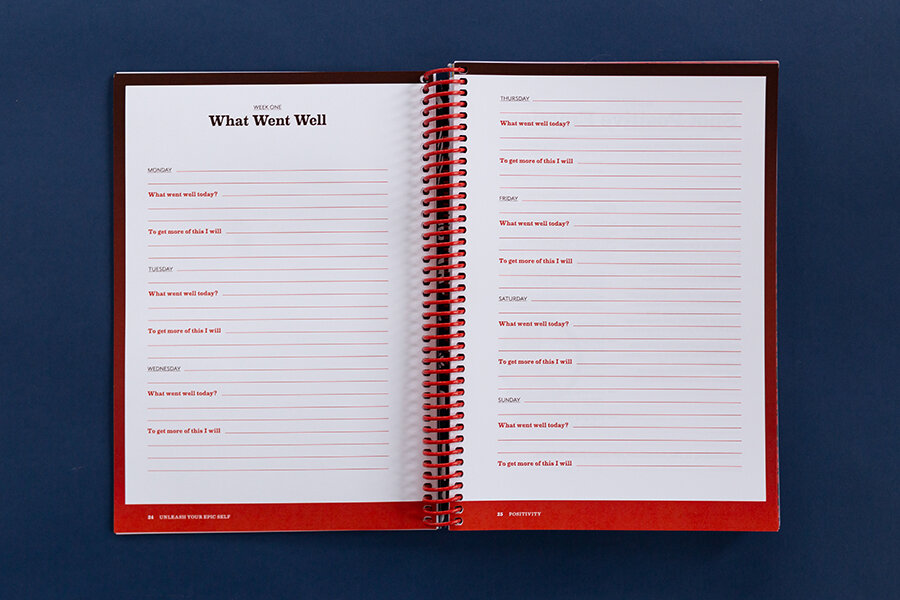 WEEK ONE
What Went Well
MONDAY
What went well today?
To get more of this I will
TUESDAY
What went well today?
To get more of this I will
WEDNESDAY
What went well today?
To get more of this I will
24 UNLEASH YOUR EPIC SELF
THURSDAY
What went well today?
To get more of this I will
FRIDAY
What went well today?
To get more of this I will
SATURDAY
What went well today?
To get more of this I will
SUNDAY
What went well today?
To get more of this I will
25 POSITIVITY